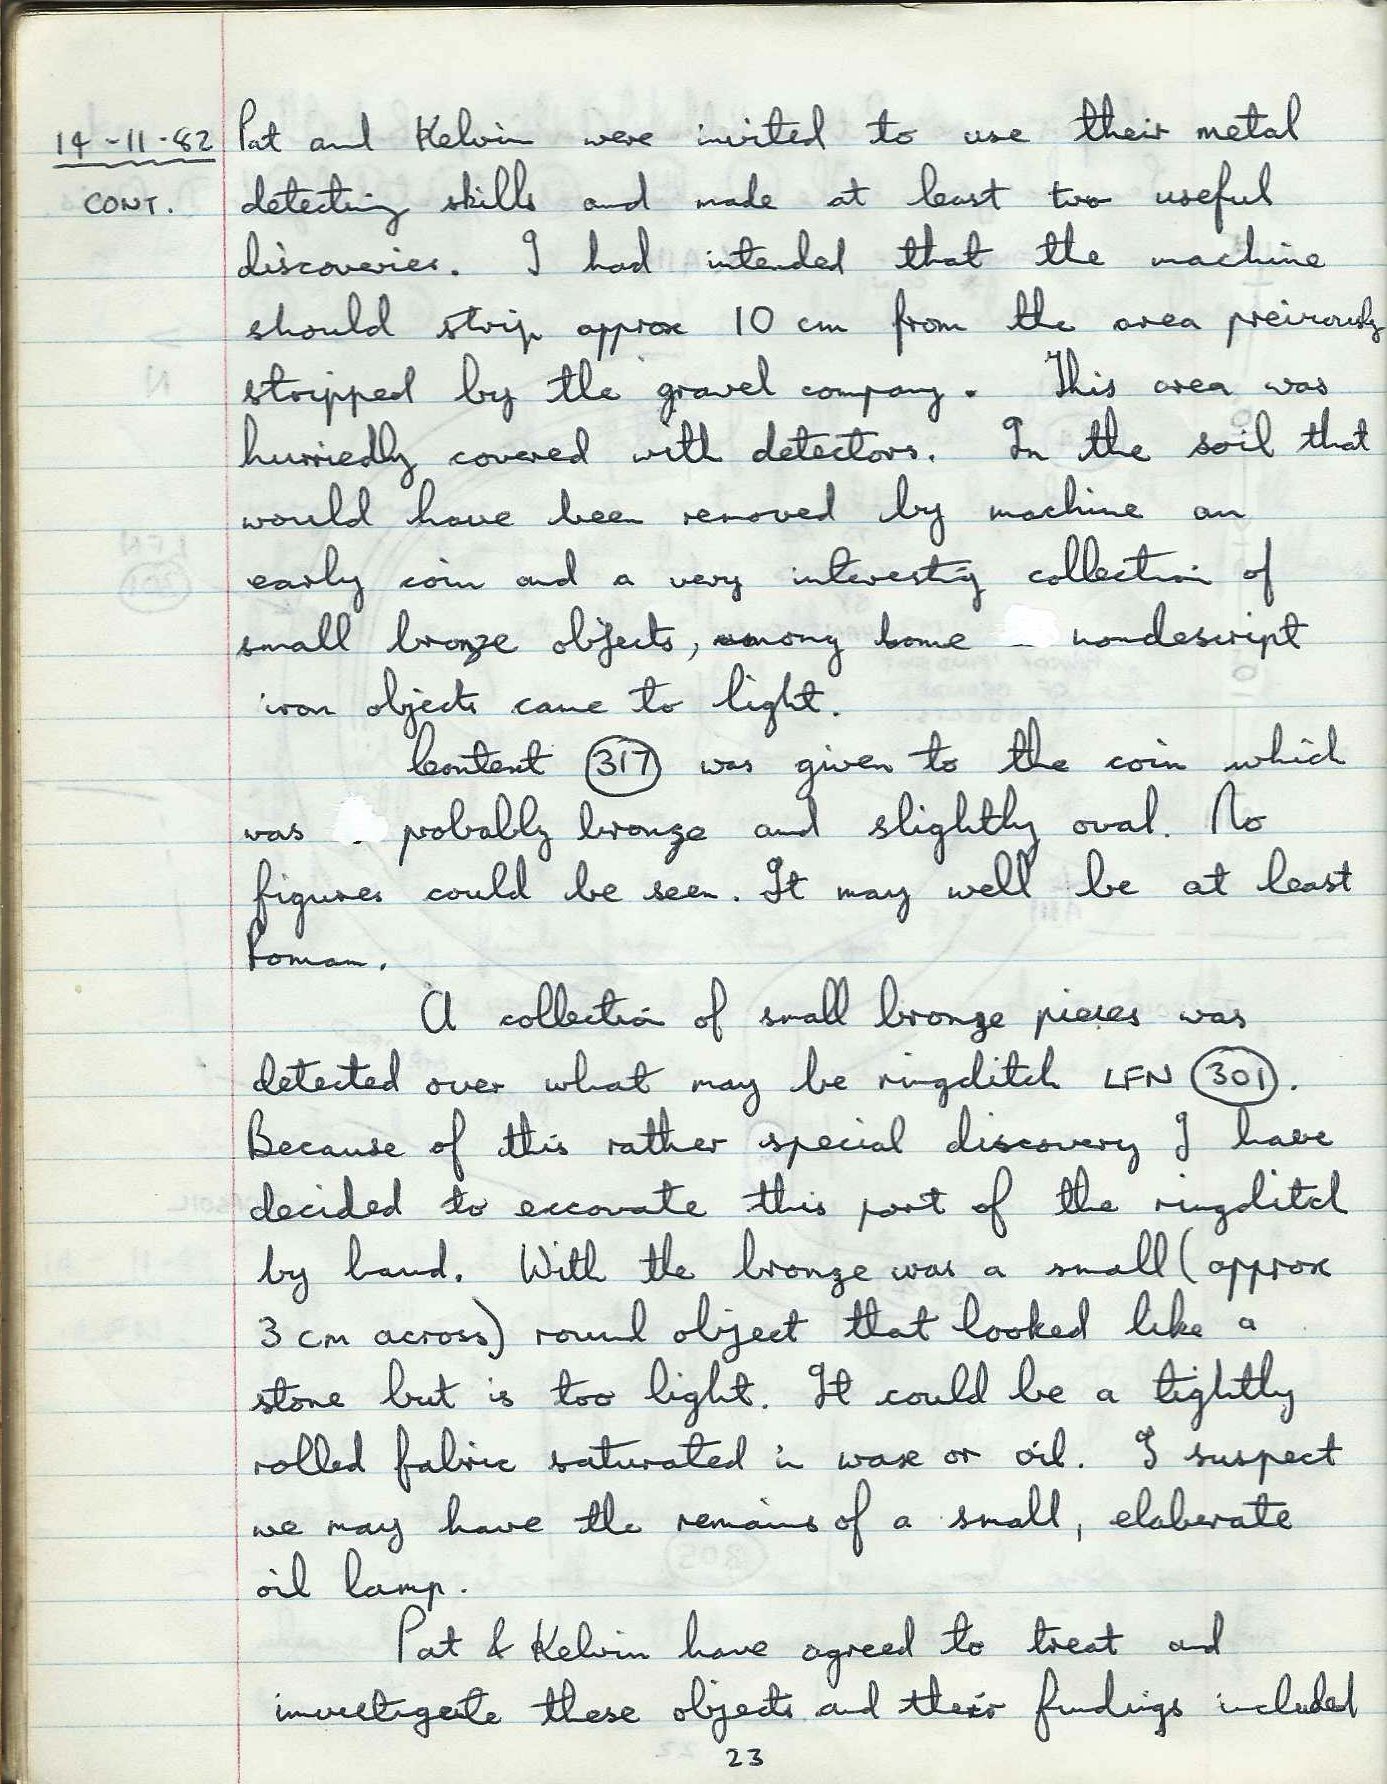 14-11-82 Pat and Kelvin were invited to use their metal
CONT. detecting skills and made at least two useful
discoveries. I had intended that the machine
should strip approx 10 cm from the area preivously
stripped by the gravel company. This area was
hurriedly covered with detectors. In the soil that
would have been removed by machine an
early coin and a very interesting collection of
small bronze objects, among some nondescript
iron objects came to light.
Context 317 was given to the coin which
was probably bronze and slightly oval. No
figures could be seen. It may well be at least
Roman.
A collection of small bronze pieces was
detected over what may be ringditch LFN 301.
Because of this rather special discovery I have
decided to excavate this part of the ringditch
by hand. With the bronze was a small (approx
3 cm across) round object that looked like a
stone but is too light. It could be a tightly
rolled fabric saturated in wax or oil. I suspect
we may have the remains of a small, elaberate
oil lamp.
Pat & Kelvin have agreed to treat and
investigate these objects and their findings included
23